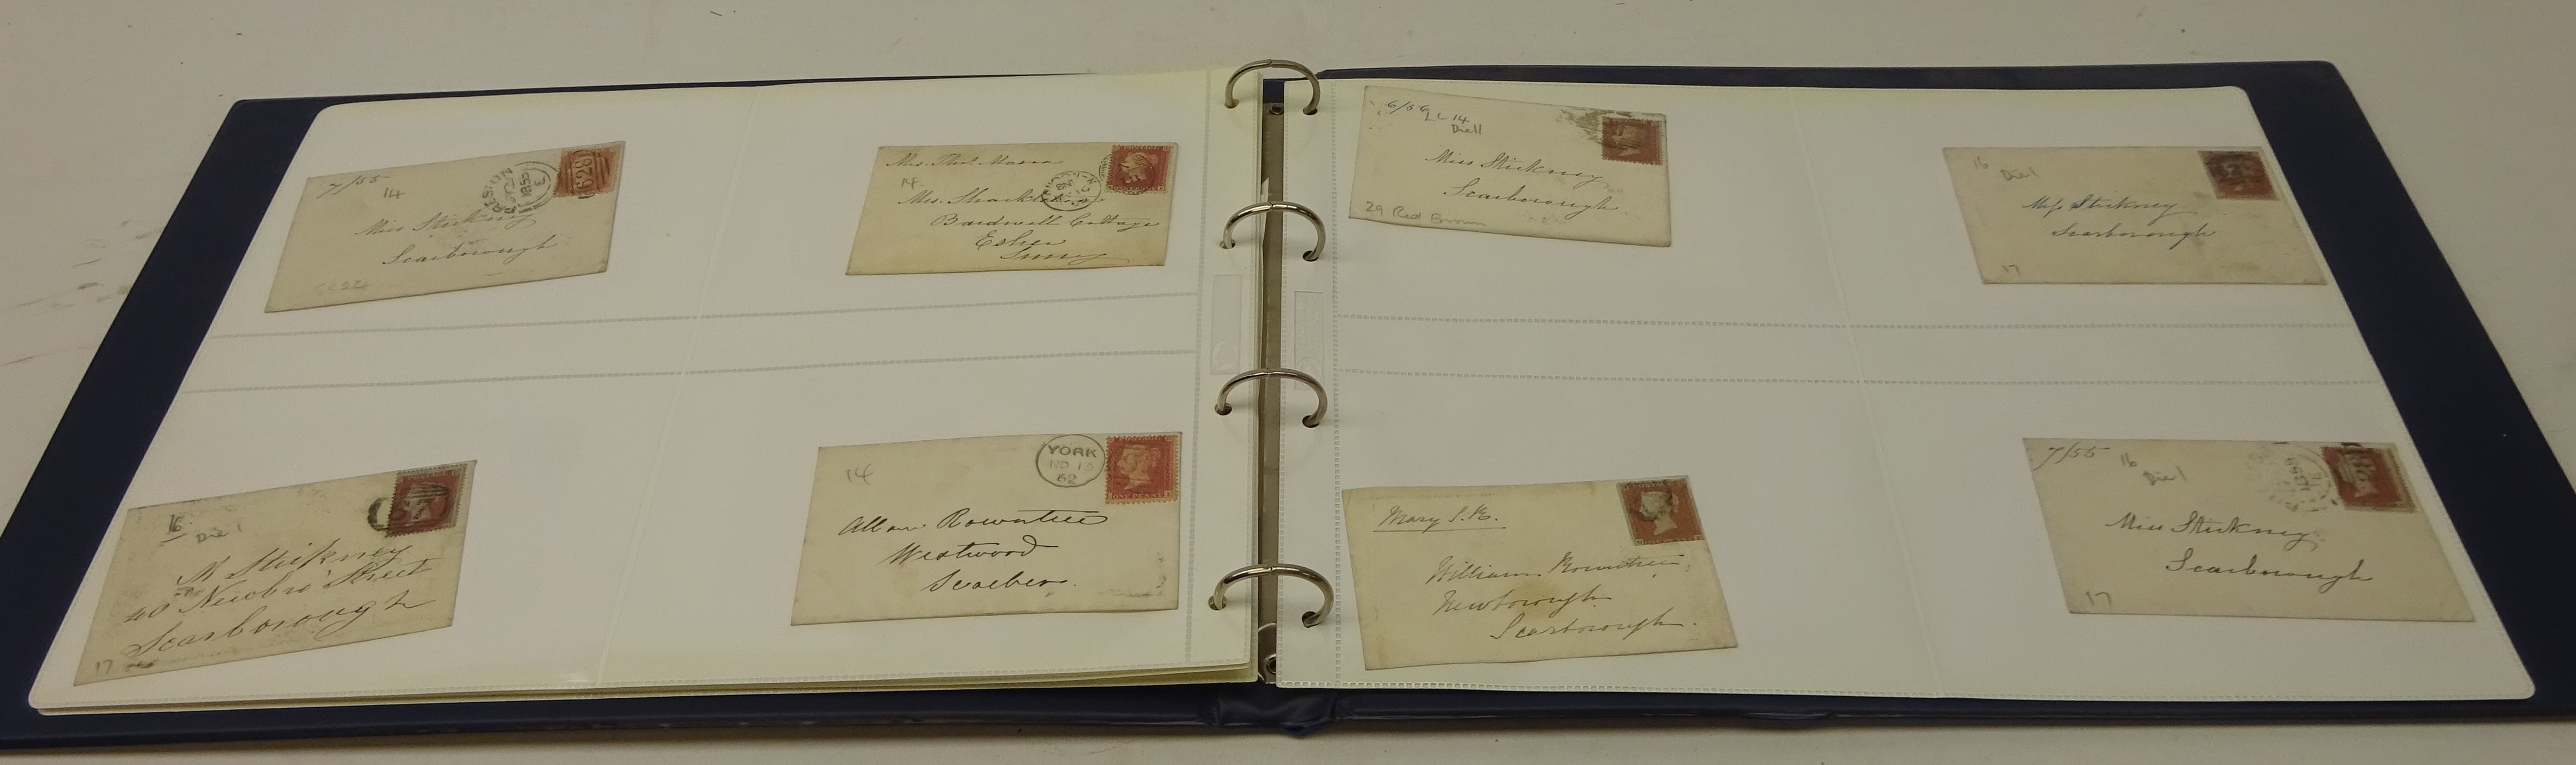 7/55
14
PRESTON
1859
628
Miss Stickney
Scarborough
Mrs. Thos. Mason
14.
Mrs.
Bardwell Cottage
Esher
Surrey
16
Die I
M Stickney
40 Newbro' Street
Scarborough
17
14
YORK
NO 13
62
ONE PENNY
Allan Rowntree
Westwood
Scarbro.
6/56
LC 14
Die II
Miss Stickney
Scarborough
29 Red Brown
16
Die I
Miss Stickney
Scarborough
17
Mary S.R.
William Rowntree,
Newborough
Scarborough.
7/55
16
Die I
Miss Stickney
Scarborough
17